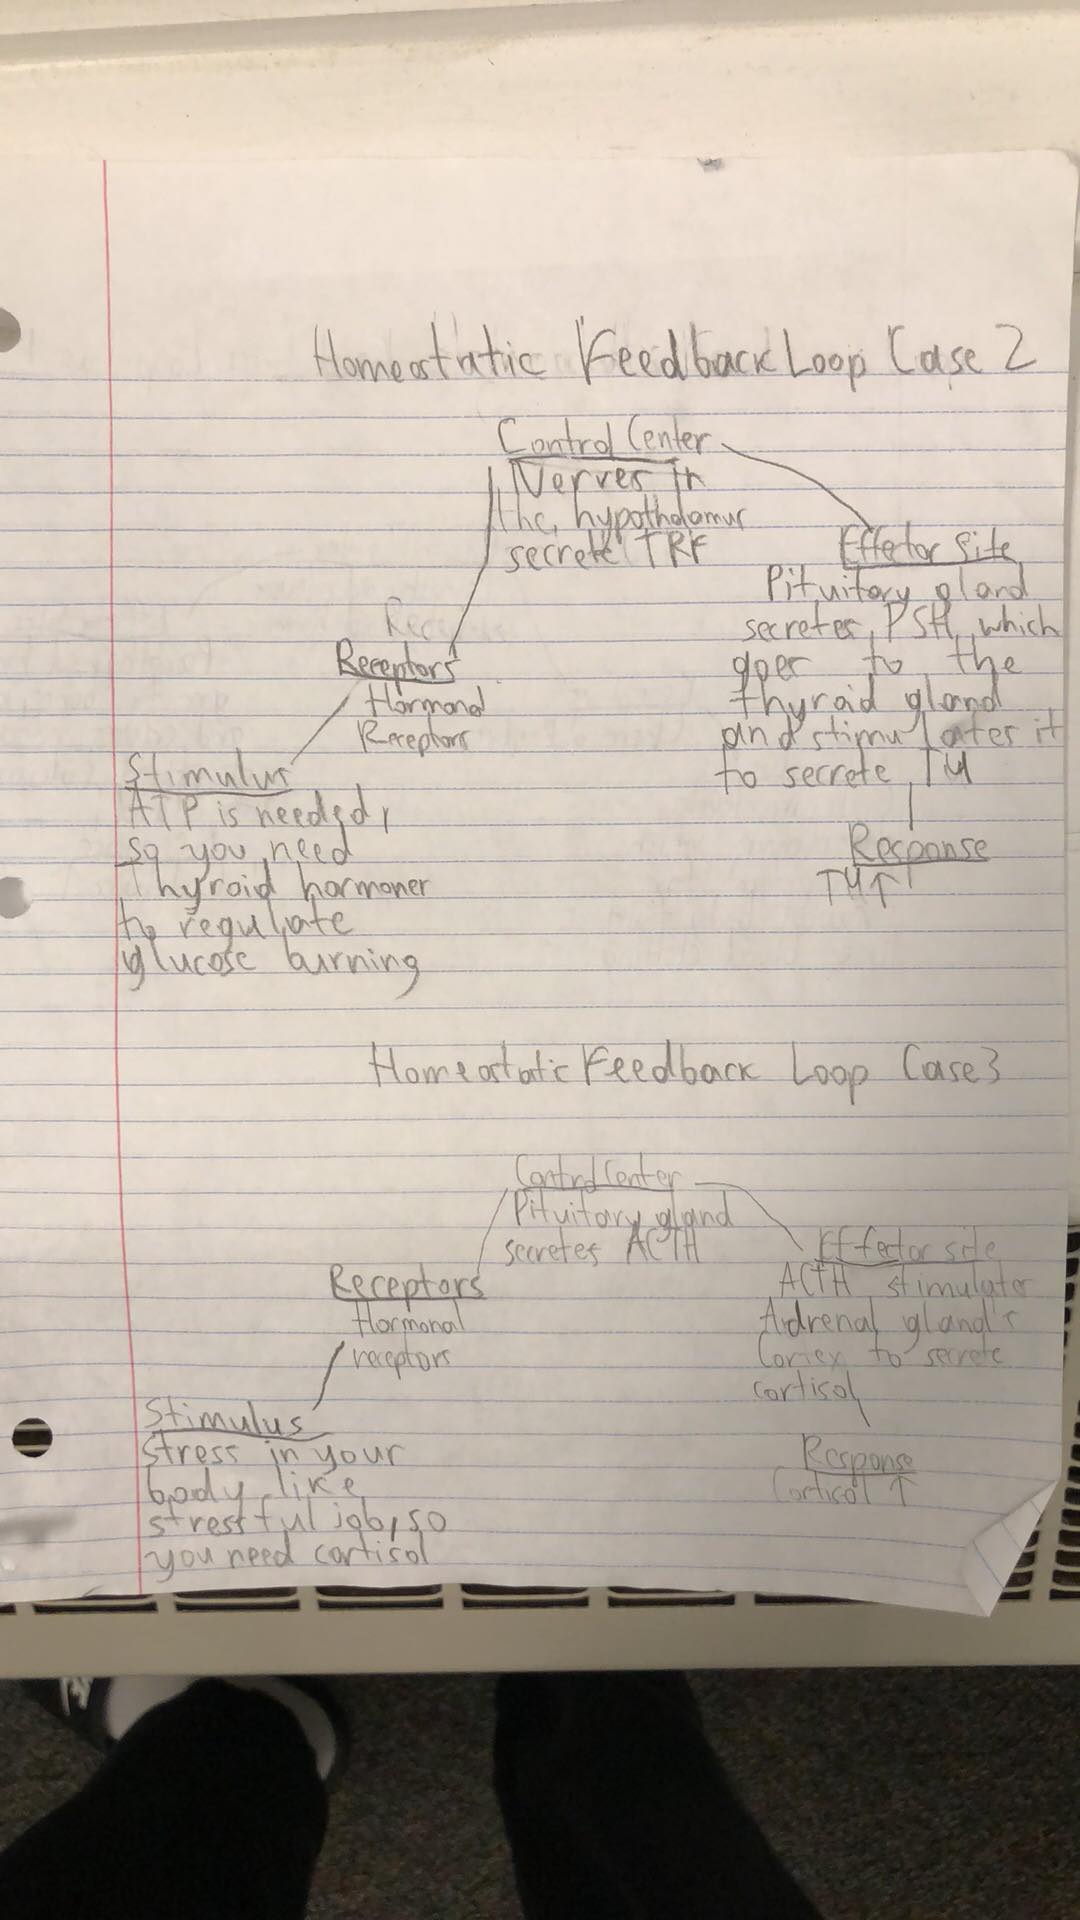 Homeostatic Feedback Loop Case 2
Control Center
Nerves in
the hypothalamus
secrete TRF
Effetor Site
Pituitary gland
secretes PSH, which
goes to the
thyroid gland
and stimulates it
to secrete TH
Response
TH↑
Rec
Receptors
Hormonal
Receptors
Stimulus
ATP is needed,
so you need
Thyroid hormones
to reguliate
glucose burning
Homeostatic Feedback Loop Case 3
Control Center
Pituitary gland
secretes ACTH
Effector site
ACTH stimulates
Adrenal gland's
Cortex to secrete
cortisol
Response
Cortisol ↑
Receptors
Hormonal
receptors
Stimulus
Stress in your
body like
stressful job, so
you need cortisol